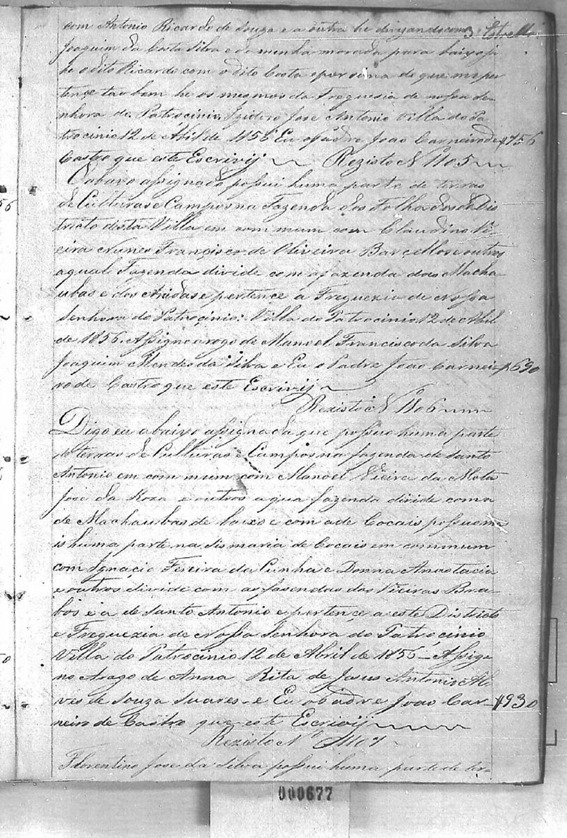 com Antonio Ricardo de Souza e a outra he divizando com
Joaquim da Costa Silva e de minha morada para baixo
he o dito Ricardo com o dito Costa e
tence tão bem he os mesmos da Freguesia de nossa Se
nhora do Patrocinio, Izidoro José Antonio Villa do Pa
trocinio 12 de Abril de 1856 Eu o Padre João Carneiro de $756
Castro que este Escrivij Rezisto N 1105
O abaxo assignado possui huma parte de terras
de Culturas e Campos na Fazenda dos Folhados do Dis
tricto desta Villa em com mum com Claudino Vi
eira Nunes Francisco de Oliveira e outros
a qual Fazenda divide com a fazenda dos Macha
ubas e dos e pertence a Freguezia de Nossa
Senhora do Patrocinio: Villa do Patrocinio 12 de Abril
de 1856. Assigno a rogo de Manoel Francisco da Silva
Joaquim Mendes da Silva e Eu o Padre João Carnei $690
ro de Castro que este Escrivij
Rezisto N 1106
Digo eu abaixo assignada que possuo huma parte
de terras de Culturas e Campos na fazenda de Santo
Antonio em com mum com Manoel Vieira da Mota
José da Roza e outros a qua fazenda divide com a
de Machaubas de baixo e com a de Cocais possuo ma
is huma parte na Sismaria de Cocais em commum
com Ignacio Fereira da Cunha e Donna Anastacia
e outros divide com as fasendas dos Vieiras Bra
bos e a de Santo Antonio e pertence a este Districto
e Freguezia de Nossa Senhora do Patrocinio
Villa do Patrocinio 12 de Abril de 1856 - Assig
no Arogo de Anna Rita de Jesus Antonio Al
ves de Souza Suares - e Eu o Padre João Car $930
neiro de Castro que este Escrivij
Rezisto N 1107
Florentino José da Silva possui huma parte de ter
000677